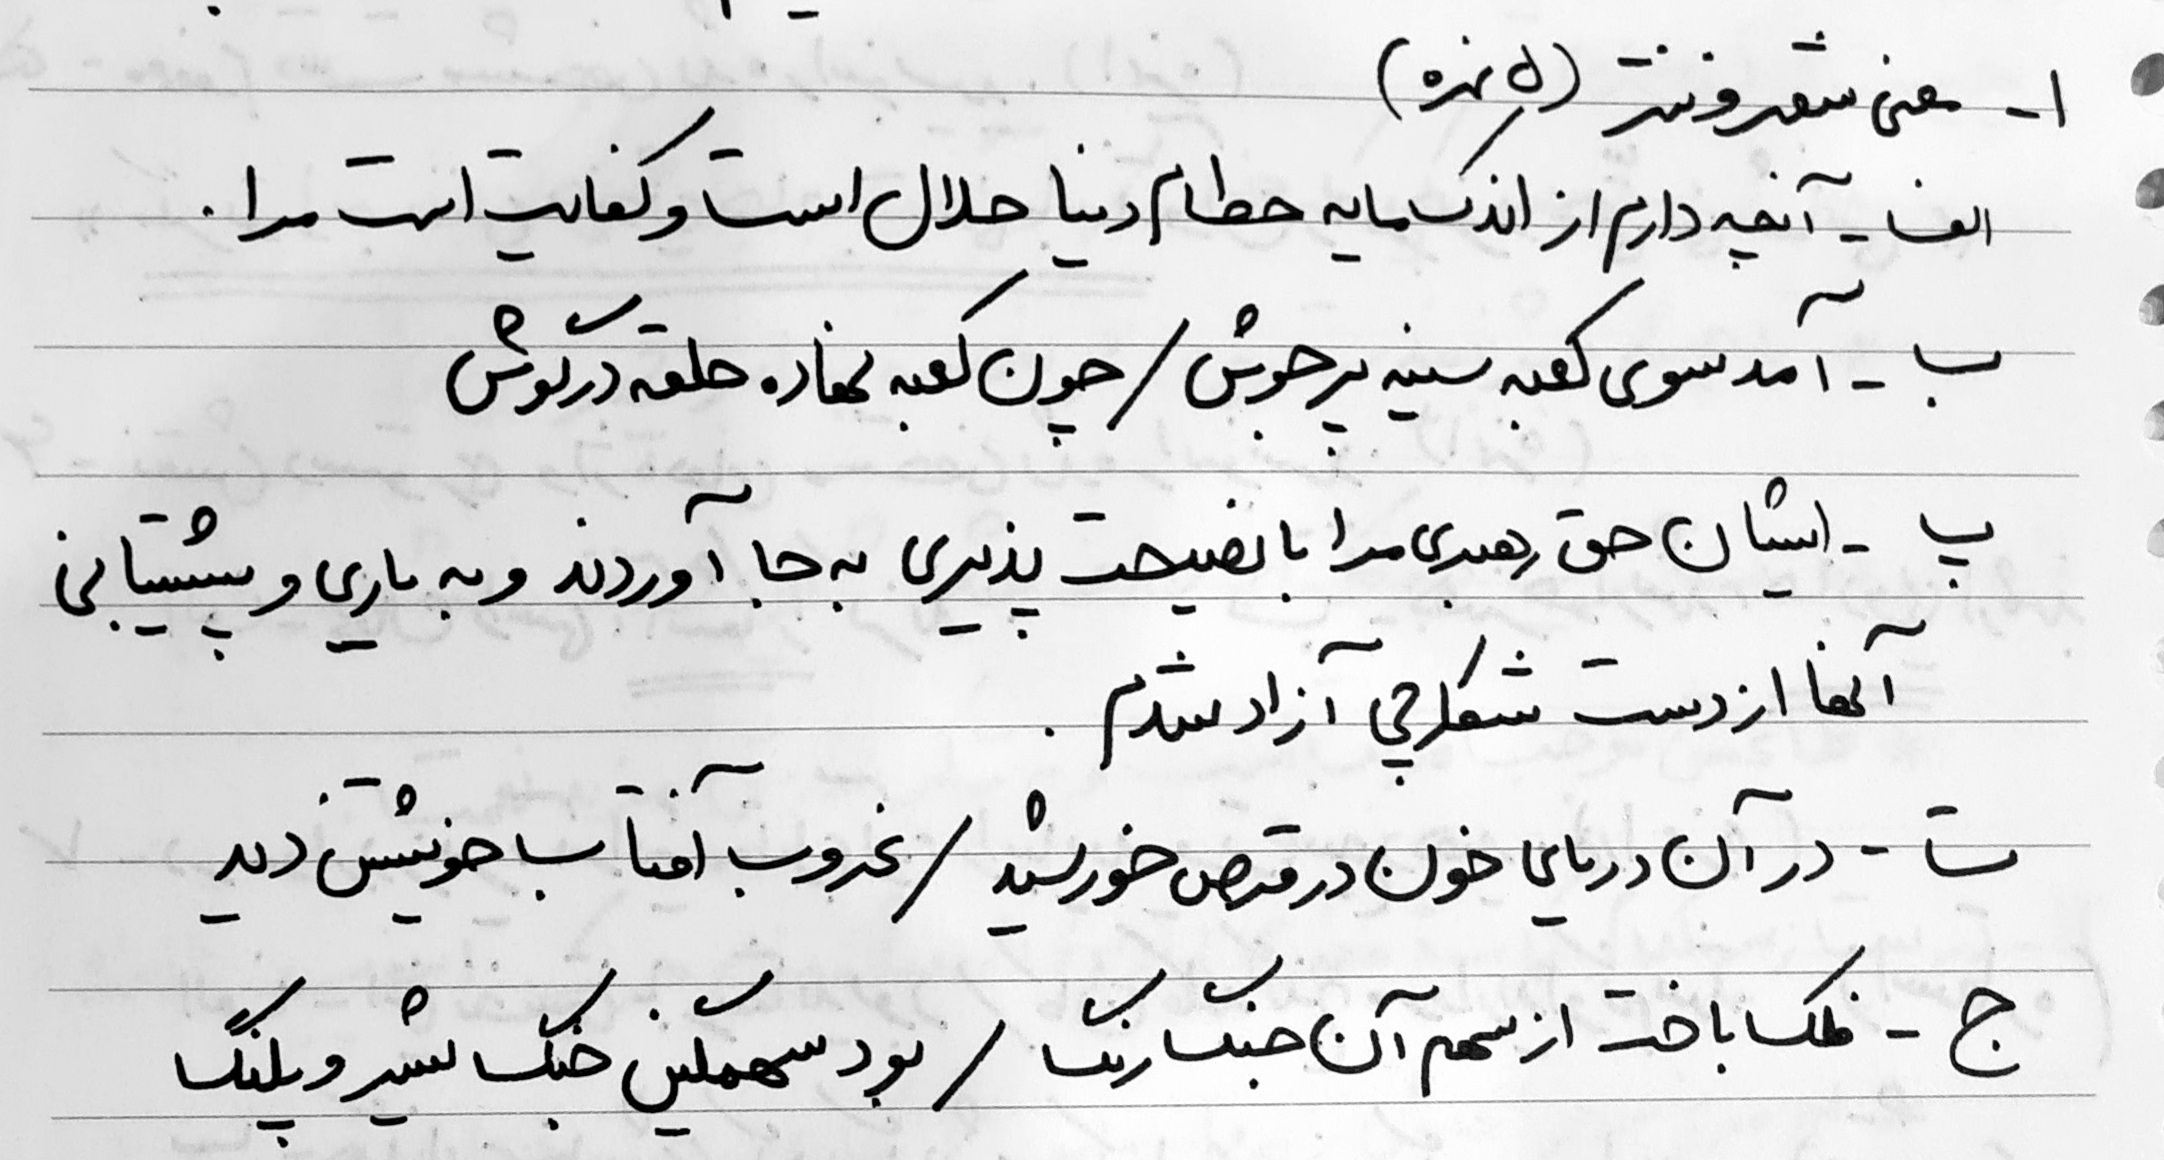 ۱- معنی شعر و نثر (۵ نمره)
الف - آنچه دارم از اندک مایه حطام دنیا حلال است و کفایت است مرا.
ب - آمد سوی کعبه سینه پر جوش / چون کعبه نهاده حلقه در گوش
پ - ایشان حق رهبری مرا با نصیحت پذیری به جا آوردند و به یاری و پشتیبانی
آنها از دست شکارچی آزاد شدم.
ت - در آن دریای خون در قرص خورشید / غروب آفتاب خویشتن دید
ج - فلک باخت از سهم آن جنگ رنگ / بود سهمگین جنگ شیر و پلنگ